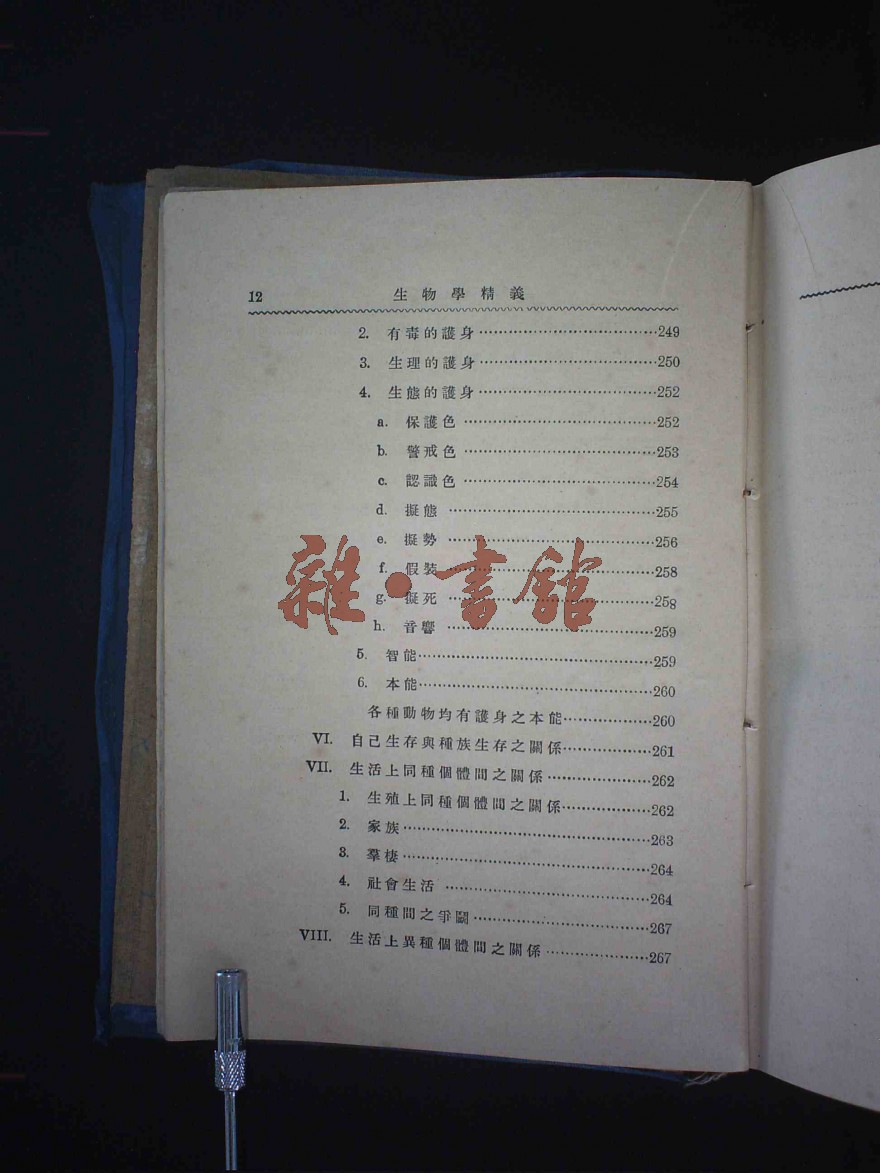 12 生物學精義
2. 有毒的護身……249
3. 生理的護身……250
4. 生態的護身……252
a. 保護色……252
b. 警戒色……253
c. 認識色……254
d. 擬態……255
e. 擬勢……256
f. 假裝……258
g. 擬死……258
h. 音響……259
5. 智能……259
6. 本能……260
各種動物均有護身之本能……260
VI. 自己生存與種族生存之關係……261
VII. 生活上同種個體間之關係……262
1. 生殖上同種個體間之關係……262
2. 家族……263
3. 羣棲……264
4. 社會生活……264
5. 同種間之爭鬭……267
VIII. 生活上異種個體間之關係……267
雜·書館